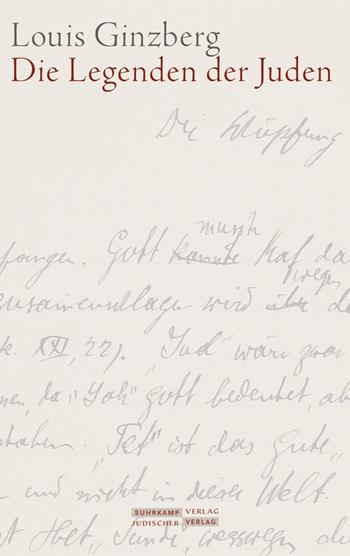 Louis Ginzberg
Die Legenden der Juden
Die Schöpfung
mußte
fangen. Gott konnte Kaf da
wegen
zusammenschlagen wird über de
k. XXI, 22). „Jud“ wäre zwar
nen, da „Yah“ Gott bedeutet, ab
staben. „Tet“ ist das Gute,
und nicht in dieser Welt.
st Het, „Sünde, weswegen de
SUHRKAMP VERLAG
JÜDISCHER VERLAG